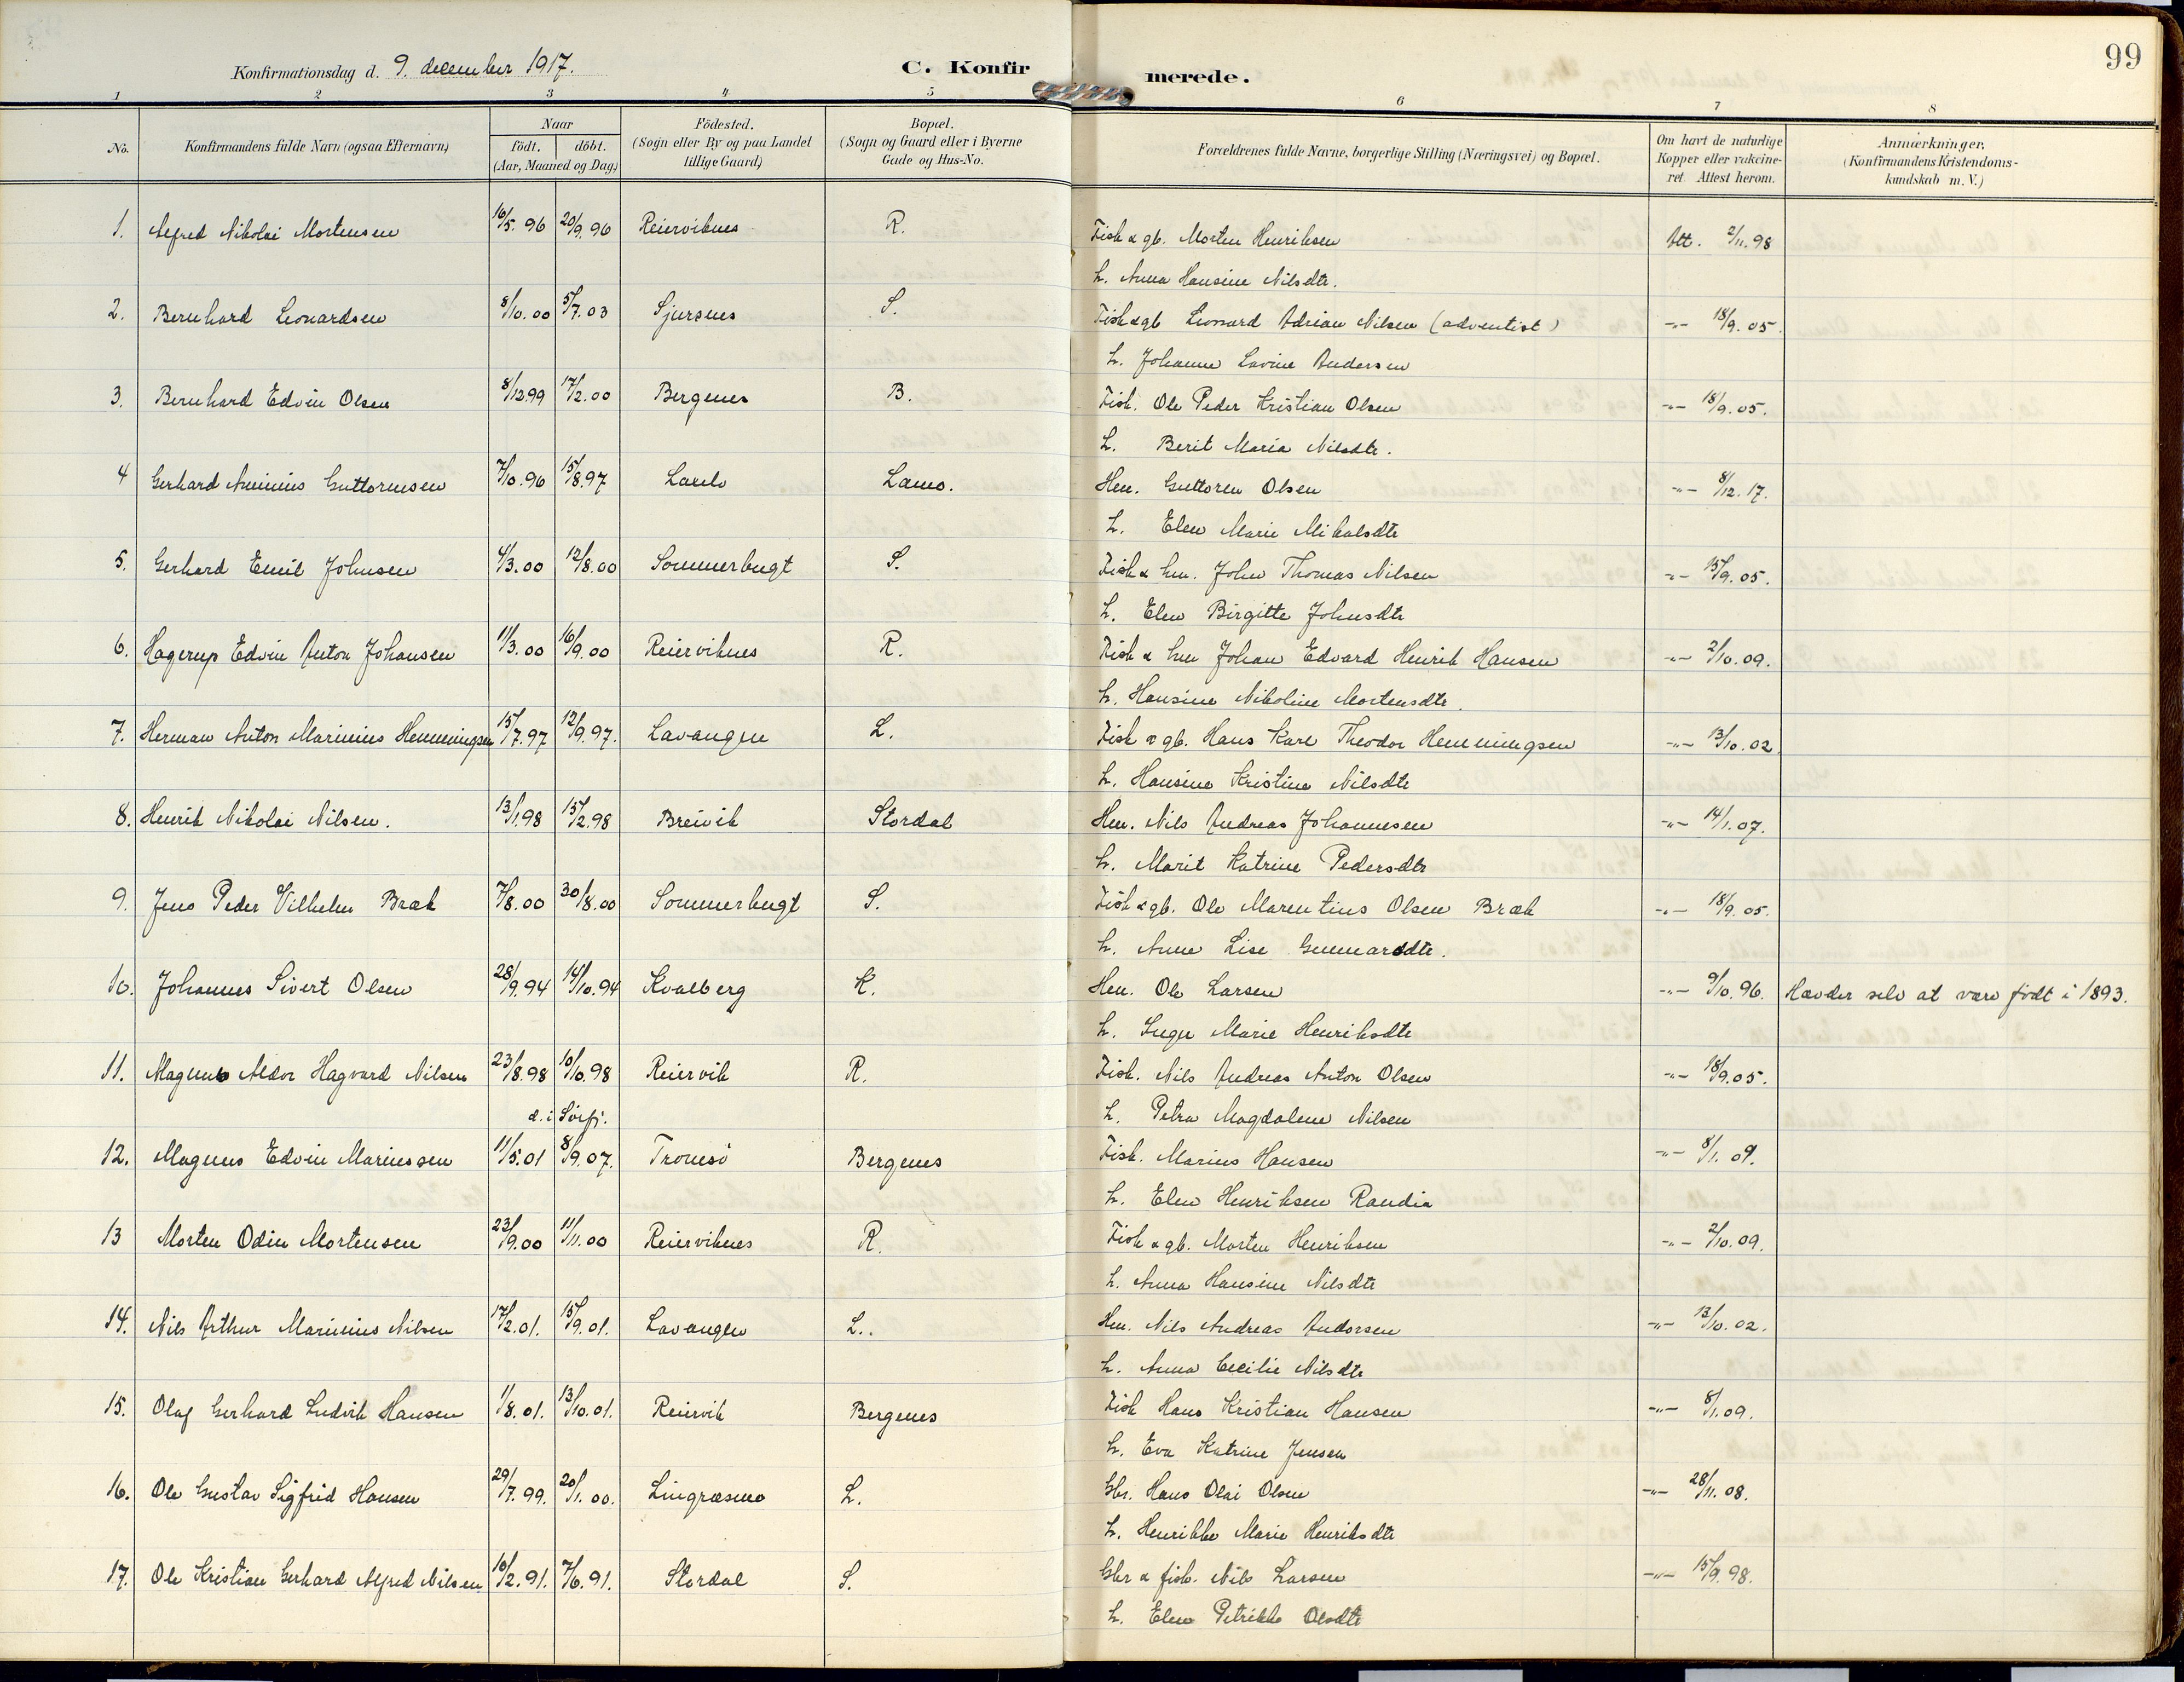 Konfirmationsdag d. 9. december 1917.
C. Konfirmerede.
99
1 2 3 4 5 6 7 8
No.
Konfirmandens fulde Navn (ogsaa Efternavn)
Naar
födt. döbt.
(Aar, Maaned og Dag)
Födested.
(Sogn eller By og paa Landet
tillige Gaard)
Bopæl.
(Sogn og Gaard eller i Byerne
Gade og Hus-No.
Forældrenes fulde Navne, borgerlige Stilling (Næringsvei) og Bopæl.
Om havt de naturlige
Kopper eller vakcine-
ret. Attest herom.
Anmærkninger.
(Konfirmandens Kristendoms-
kundskab m. V.)
1. Alfred Nikolai Mortensen 16/5. 96 20/9. 96 Reierviknes R. Fisk & gb. Morten Henriksen Att. 2/11. 98
h. Anna Hansine Nilsdtr.
2. Bernhard Leonardsen 8/10. 00 5/7. 03 Sjursnes S. Fisk & gb Leonard Adrian Nilsen (adventist) -"- 18/9. 05.
h. Johanne Lovine Andersen
3. Bernhard Edvin Olsen 8/12 99 17/2. 00 Bergenes B. Fisk. Ole Peder Kristian Olsen -"- 18/9. 05.
h. Berit Maria Nilsdtr.
4 Gerhard Guttormsen 7/10. 96 15/8 97 Lamo. Hm. Guttorm Olsen -"- 8/12. 17.
h. Elen Marie Mikalsdtr
5. Gerhard Emil Johnsen 4/3. 00 12/8. 00 Sommerbugt S. Fisk & hm. John Thomas Nilsen -"- 15/9. 05.
h. Elen Birgitte Johnsdtr
6. Hagerup Edvin Anton Johansen 11/3. 00 16/9. 00 Reierviknes R. Fisk & hm Johan Edvard Henrik Hansen -"- 2/10. 09.
h. Hansine Nikoline Mortensdtr.
7. Herman Anton Marinius Hemmingsen 15/7. 97 12/9. 97. Lavangen L. Fisk & gb. Hans Karl Theodor Hemmingsen -"- 13/10. 02.
h. Hansine Kristine Nilsdtr
8. Henrik Nikolai Nilsen. 13/1. 98 15/2. 98 Breivik Stordal Hm. Nils Andreas Johannesen -"- 14/1. 07.
h. Marit Katrine Pedersdtr
9. Jens Peder Vilhelm Bræk 7/8. 00 30/8. 00 Sommerbugt S. Fisk & gb. Ole Marentius Olsen Bræk -"- 18/9. 05.
h. Anne Lise Gunnarsdtr.
10. Johannes Sivert Olsen 28/9. 94 14/10. 94 Kvalberg K. Hm. Ole Larsen -"- 9/10. 96. Hævder selv at være född i 1893.
h. Inger Marie Henriksdtr
11. Magnus Aldor Hagvard Nilsen 23/8. 98 10/10. 98 Reiervik R. Fisk. Nils Andreas Anton Olsen -"- 18/9. 05.
d. i Sörfj. h. Petra Magdalene Nilsen
12. Magnus Edvin Mariussen 11/5. 01 8/9. 07. Tromsö Bergenes Fisk. Marius Hansen -"- 8/1. 09.
h. Elen Henriksen Raudia
13 Morten Odin Mortensen 23/9. 00 11/11. 00 Reierviknes R. Fisk & gb. Morten Henriksen -"- 2/10. 09.
h. Anna Hansine Nilsdtr
14. Nils Arthur Marinius Nilsen 17/2. 01. 15/9. 01. Lavangen L. Hm. Nils Andreas Andorsen -"- 13/10. 02.
h. Anna Cecilie Nilsdtr
15. Olaf Gerhard Ludvik Hansen 1/8. 01. 13/10. 01. Reiervik Bergenes Fisk Hans Kristian Hansen -"- 8/1. 09.
h. Eva Katrine Jensen
16. Ole Gustav Sigfrid Hansen 29/7. 99. 20/1. 00. Lingræsmo L. Gbr. Hans Olai Olsen -"- 28/11. 08.
h. Henrikke Marie Henriksdtr
17. Ole Kristian Gerhard Alfred Nilsen 10/2. 91. 7/6. 91. Stordal S. Gbr & fisk. Nils Larsen -"- 15/9. 98.
h. Elen Petrikke Olsdtr